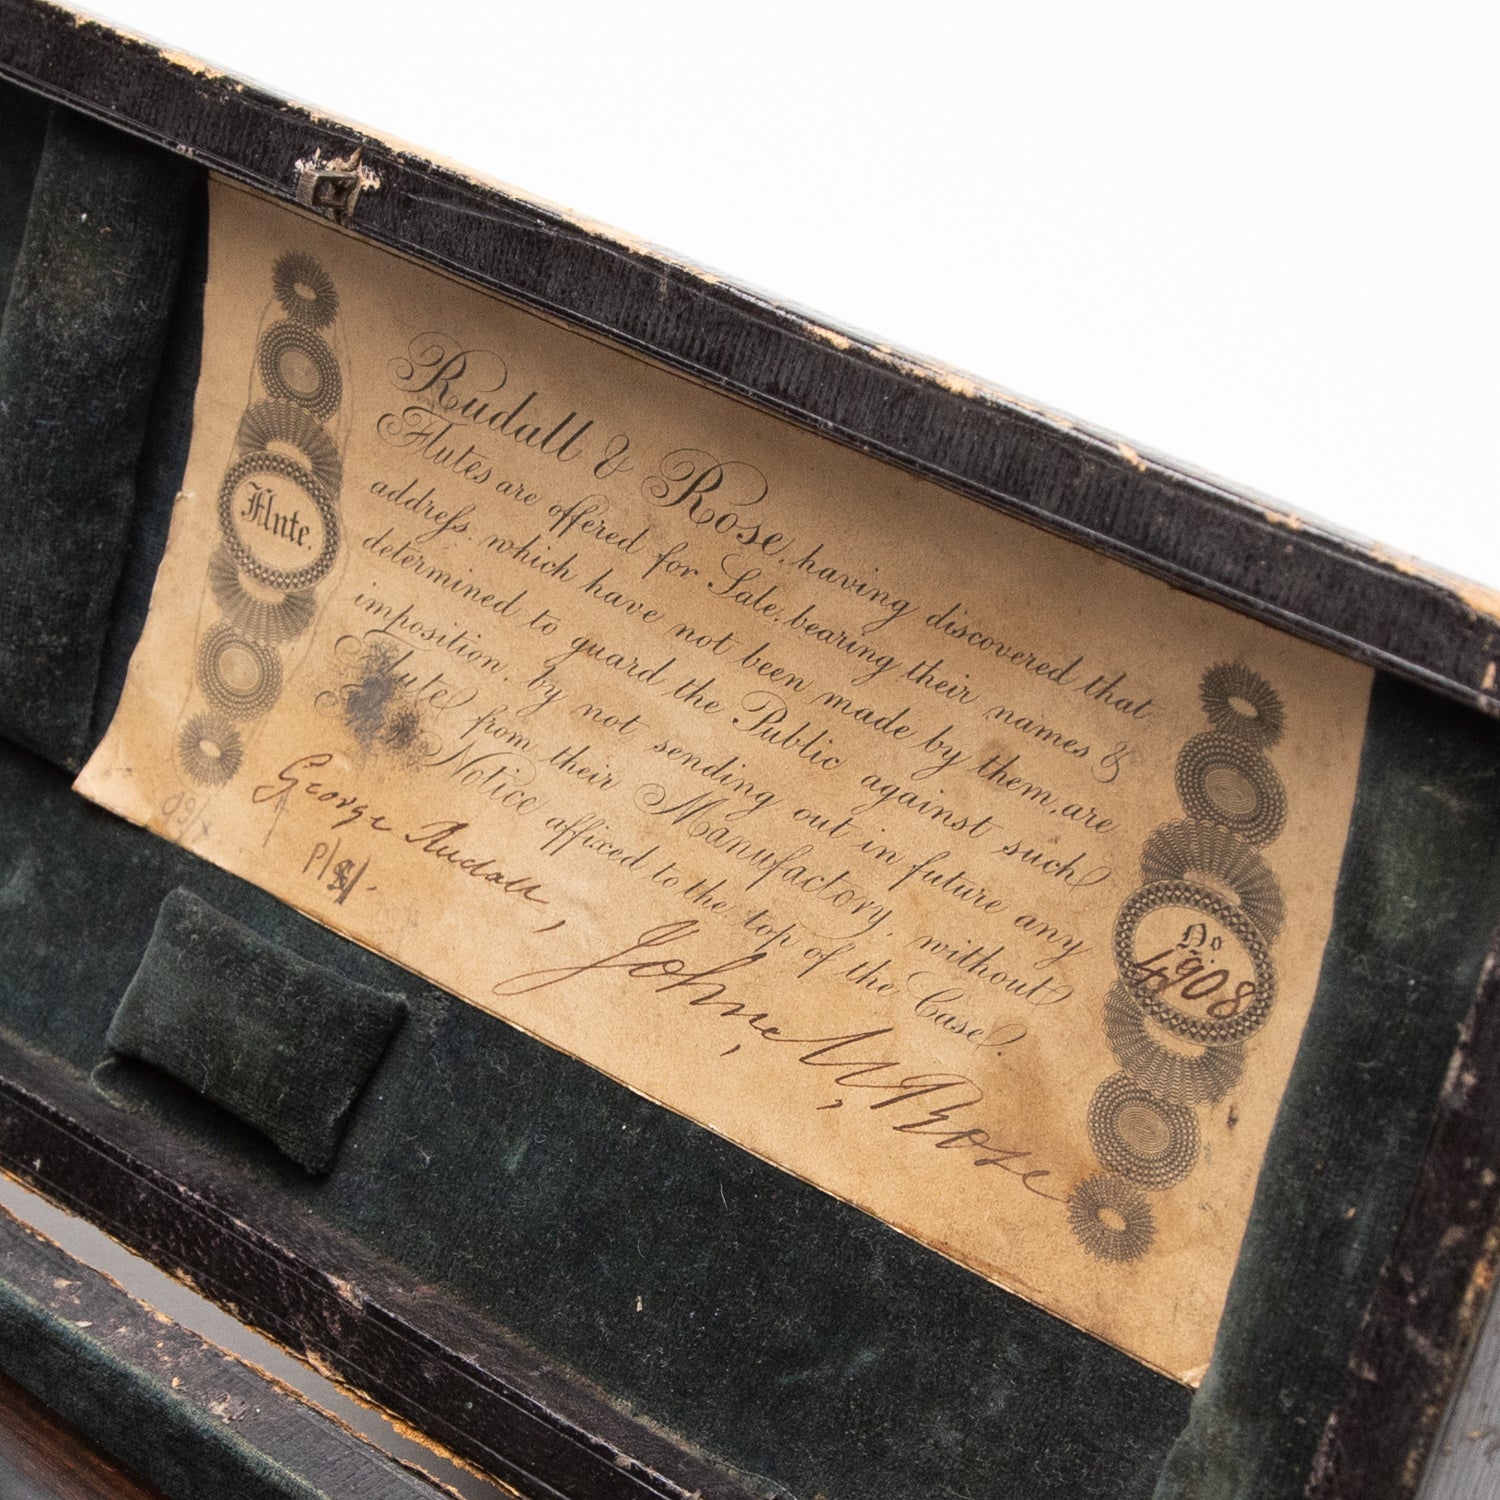 Flute.
Rudall & Rose, having discovered that
Flutes are offered for Sale, bearing their names &
addreſs, which have not been made by them, are
determined to guard the Public against such
imposition, by not sending out in future any
Flute from their Manufactory, without
a Notice affixed to the top of the Case.
George Rudall,
John M. Rose
No
4908